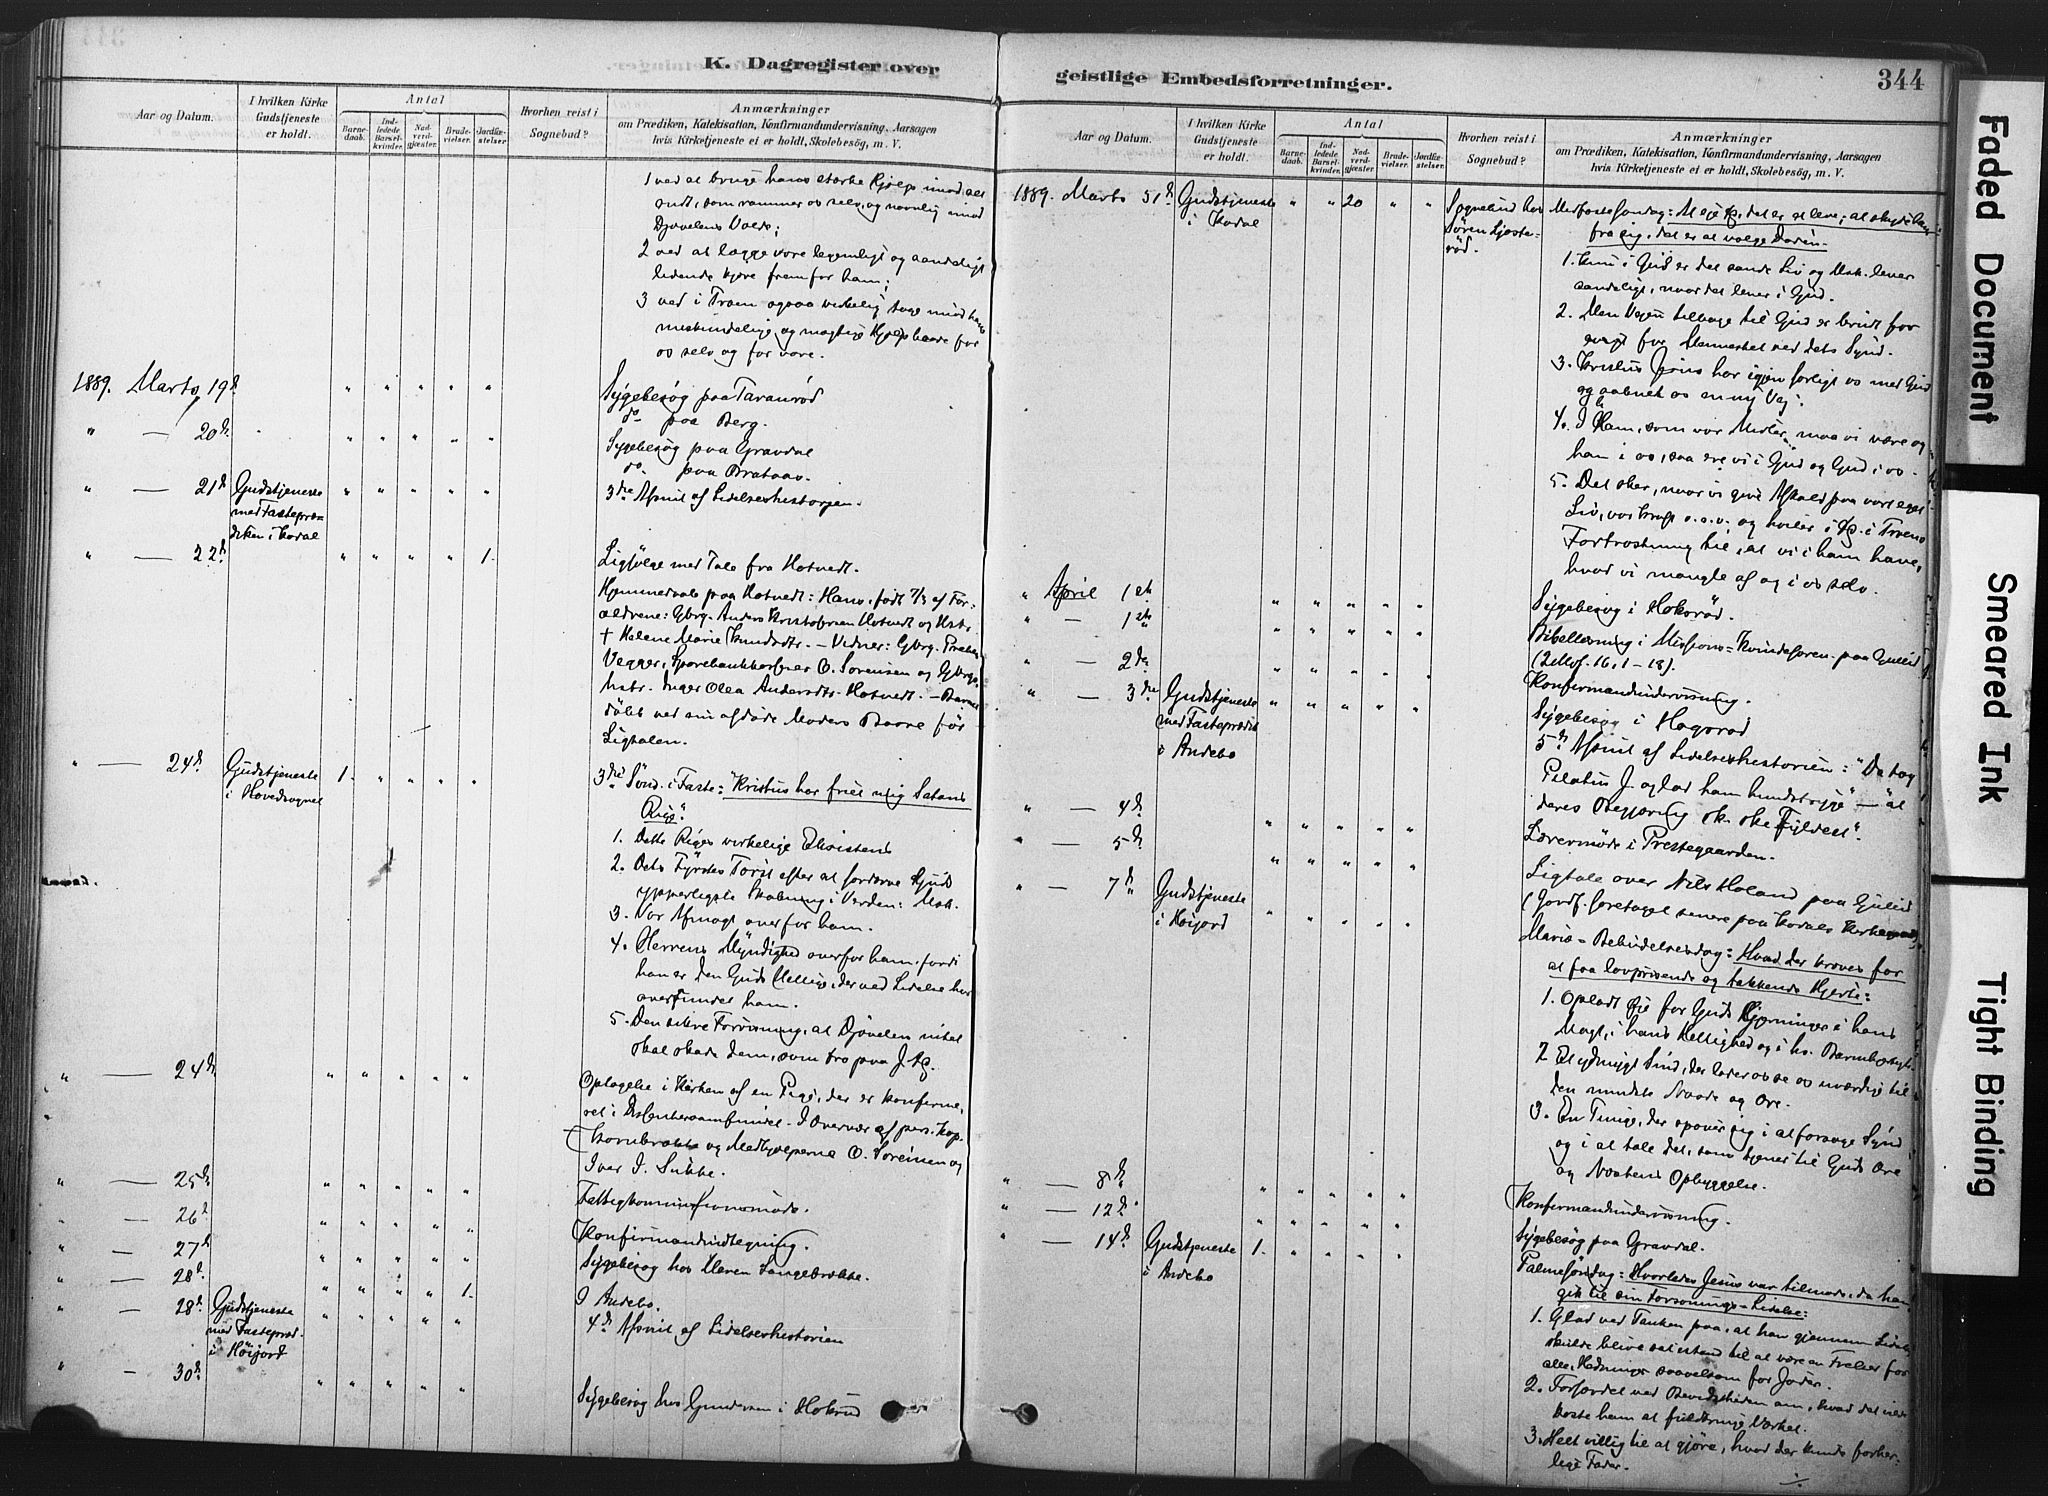 K. Dagregister over
geistlige Embedsforretninger.
344
Aar og Datum.
I hvilken Kirke Gudstjeneste er holdt.
Antal
Barnedaab.
Indledede Barselkvinder.
Nadverdgjester.
Brudevielser.
Jordfæstelser.
Hvorhen reist i Sognebud?
Anmærkninger
om Prædiken, Katekisation, Konfirmandundervisning, Aarsagen
hvis Kirketjeneste ei er holdt, Skolebesøg, m. V.
1 ved at bruge hans stærke Hjælp imod alt
ondt, som rammer os selv, og navnlig imod
Djævelens Vold;
2 ved at lægge vore legemligt og aandeligt
lidende kjære frem for ham;
3 ved i Troen ogsaa virkelig tage imod hans
og mægtige Hjælp baade for
os selv og for vore.
1889. Marts 19d " " " " " Sygebesøg paa Taranrød
do paa Berg.
" — 20d " " " " " Sygebesøg paa Gravdal
do paa
" — 21d Gudstjeneste " " " " " 3die Afsnit af Lidelseshistorien.
med Fastepræ-
diken i Kodal
" — 22d " " " " 1. Ligfølge med Tale fra Hotvedt.
Hjemmedaab paa Hotvedt: Hans, født 7/3 af For-
ældrene: Gbrg. Anders Kristofersen Hotvedt og Hstr.
+ Helene Marie Knudsdtr. – Vidner: Gbrg. Preben
Vegger, Sparebankkasserer O. Sørensen og Gbrgs
hstr. Inger Olea Andersdtr. Hotvedt. – Barnet
døbt ved sin afdøde Moders Baare før
Ligtalen.
" — 24d Gudstjeneste 1. " " " " 3die Sønd. i Faste: "Kristus har friet mig Satans
i Hovedsognet
Rige".
1. Dette Riges virkelige Eksistens
2. Dets Fyrstes Tørst efter at fordærve Guds
ypperligste Skabning i Verden: Msk.
3. Vor Afmagt overfor ham.
4. Herrens Myndighed overfor ham, fordi
han er den Guds Hellige, der ved Lidelse har
overvundet ham.
5. Den sikre Forvisning, at Djævelen intet
skal skade dem, som tro paa J. Kr.
" — 24d " " " " " Optagelse i Kirken af en Pige, der er konfirme-
ret i Dissentersamfundet. I Overvær af pers. Kap.
og Medhjælperne O. Sørensen og
Iver I. Sukke.
" — 25d " " " " " Fattigkommissionsmøde.
" — 26d " " " " " Konfirmandindtegning.
" — 27d " " " " " Sygebesøg hos Maren Langebrække.
" — 28d " " " " 1. I Andebo.
" — 28d Gudstjeneste " " " " " 4d Afsnit af Lidelseshistorien
med Fastepræd.
i Høijord
" — 30d " " " " " Sygebesøg hos Gundersen i Hotvud
Aar og Datum.
I hvilken Kirke Gudstjeneste er holdt.
Antal
Barnedaab.
Indledede Barselkvinder.
Nadverdgjester.
Brudevielser.
Jordfæstelser.
Hvorhen reist i Sognebud?
Anmærkninger
om Prædiken, Katekisation, Konfirmandundervisning, Aarsagen
hvis Kirketjeneste ei er holdt, Skolebesøg, m. V.
1889. Marts 31d Gudstjeneste " " 20 " " Sognebud hos Midfastesøndag: At eje Kr., det er at leve; at skyde ham
i Kodal
Søren
fra sig, det er at vælge Døden.
rød.
1. Kun i Gud er det sande Liv og Msk. lever
aandeligt, naar det lever i Gud.
2. Men Vejen tilbage til Gud er brudt for
evigt for Mennesket ved dets Synd.
3. Kristus Jesus har igjen forligt os med Gud
og aabnet os en ny Vej.
4. I Ham, som vor Midler, maa vi være og
han i os, saa ere vi i Gud og Gud i os.
5. Det sker, naar vi give Afkald paa vort eget
Liv, vor Kraft o.s.v. og hviler i Kr. i Troens
Fortrøstning til, at vi i ham have,
hvad vi mangle af og i os selv.
" April 1ste " " " " " Sygebesøg i
" — 1ste " " " " " Bibellæsning i Missions-Kvindeforen. paa Gulli
(2 Mos. 16, 1–18).
" — 2den " " " " " Konfirmandundervisning.
" — 3die Gudstjeneste " " " " " Sygebesøg i
med Fastepræd.
i Andebo
5te Afsnit af Lidelseshistorien: "Da tog
Pilatus J. og lod ham hudstryge" – "at
deres Begjæring sk. ske Fyldest".
" — 4d " " " " " Lærermøde i Prestegaarden.
" — 5d " " " " " Ligtale over Nils Holand paa Gulli
(Jordf. foretaget senere paa Kodals Kirkegaard)
" — 7d Gudstjeneste " " " " " Mariæ-Bebudelsesdag: Hvad der kræves for
i Høijord
at faa lovprisende og takkende Hjerte:
1. Opladt Øje for Guds Gjerninger i hans
Magt, i hans Hellighed og i hs. Barmhjertigh.
2 Et ydmygt Sind, der lader os se os uværdige til
den mindste Naade og Ære.
3. En Tunge, der øver sig i at forsage Synd
og i at tale det, som tjener til Guds Ære
og Næstens Opbyggelse.
" — 8d " " " " " Konfirmandundervisning.
" — 12d " " " " " Sygebesøg paa Gravdal.
" — 14d Gudstjeneste 1. " " " " Palmesøndag: Hvorledes Jesus var tilmode, da han
i Andebo
gik til sin Forsonings-Lidelse:
1. Glad ved Tanken paa, at han gjennem Lidelse
skulde blive sat istand til at være en Frelser for
alle, Hedninger saavelsom for Jøder.
2. Forfærdet ved Bevidstheden om, hvad det vilde
koste ham at fuldbringe Værket.
3. Helt villig til at gjøre, hvad der kunde forher-
lige Fader.
Faded Document
Smeared Ink
Tight Binding